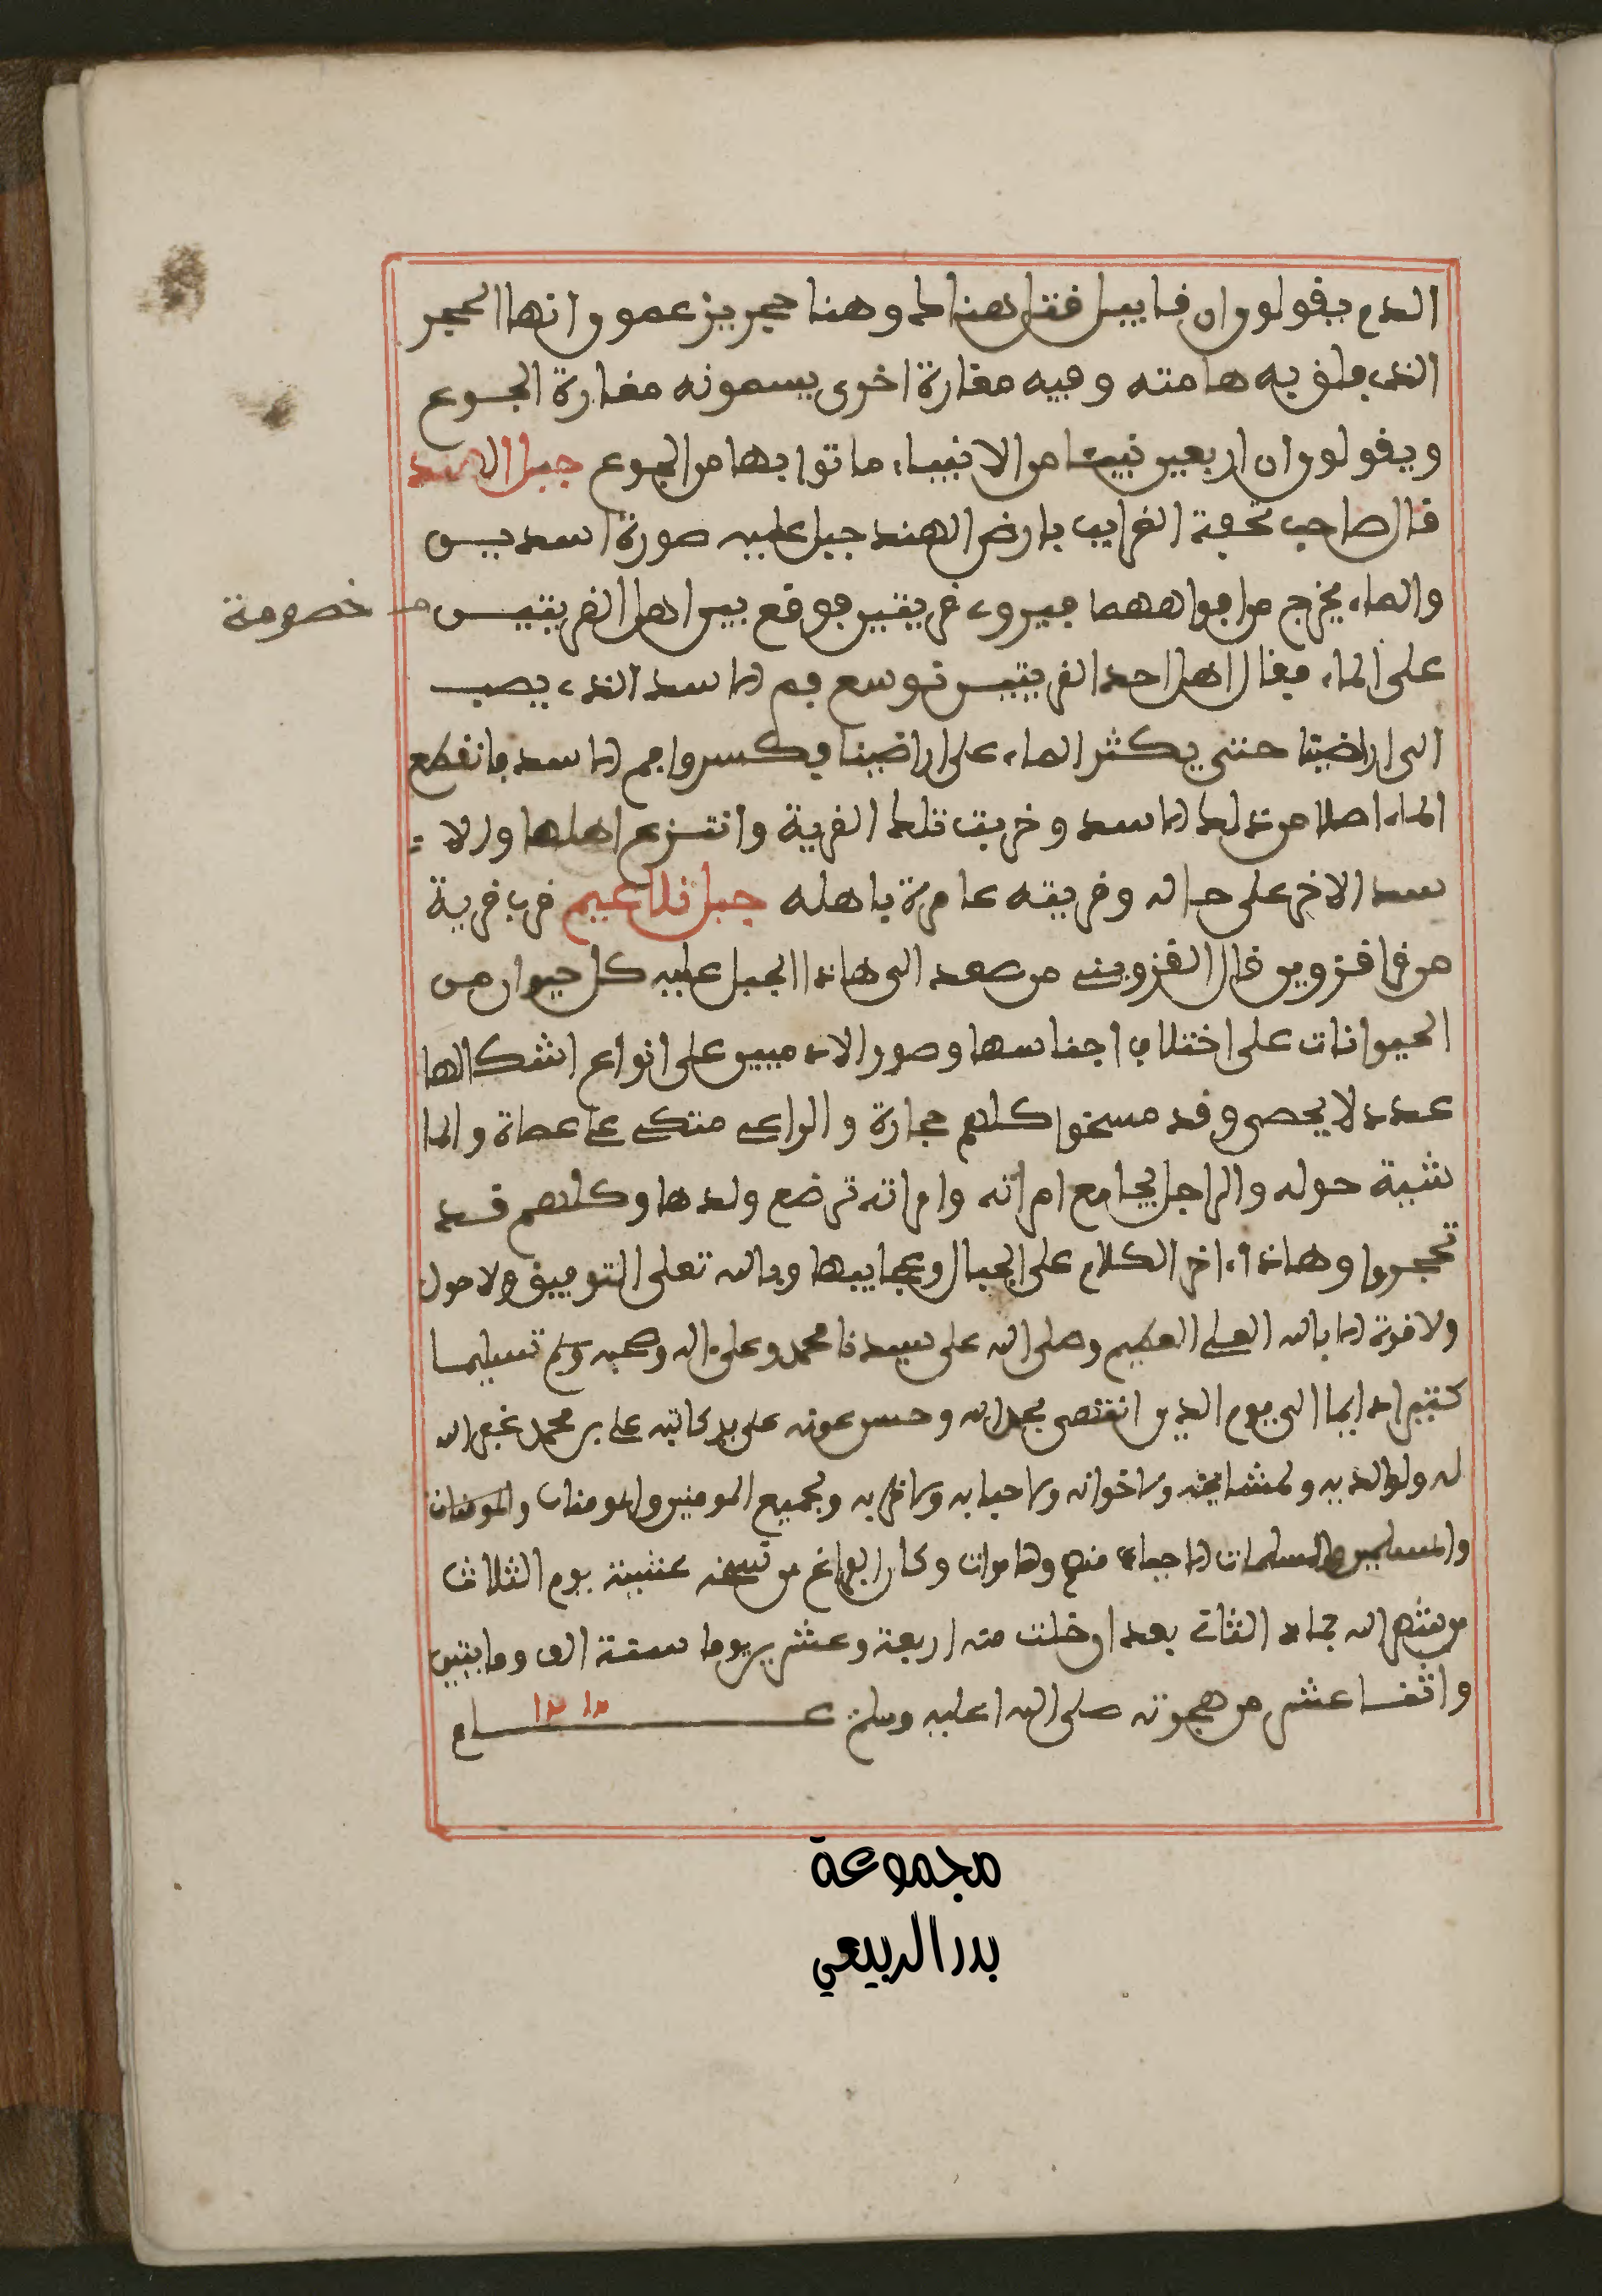 الدم يقولون ان قابيل قتل هناك وهنا حجر يزعمون انها الحجر
الذي فلق به هامته وفيه مغارة اخرى يسمونه مغارة الجوع
ويقولون ان اربعين نبيا من الانبياء ماتوا بها من الجوع جبل الهند
قال صاحب تحفة الغرايب بارض الهند جبل عليه صورة اسدين
والماء يخرج من افواههما فيروي قريتين فوقع بين اهل القريتين خصومة
على الماء فقال اهل احد القريتين نوسع فم الاسد الذي يصب
الى اراضينا حتى يكثر الماء على اراضينا فكسروا فم الاسد فانقطع
الماء اصلا من ذلك الاسد وخربت تلك القرية وانتزع اهلها والا
سد الاخر على حاله وقريته عامرة باهله جبل قرب قرية
من قرا قزوين قال القزويني من صعد الى هاذا الجبل عليه كل حيوان من
الحيوانات على اختلاف اجناسها وصور الادميين على انواع اشكالها
عدد لا يحصى وقد مسخوا كلهم حجارة والراعي متكي على عصاة والما
شية حوله والراجل يجامع امراته وامراته ترضع ولدها وكلهم قد
تحجروا وهاذا ءاخر الكلام على الجبال وعجايبها وبالله تعلى التوفيق ولا حول
ولا قوة الا بالله العلي العظيم وصلى الله على سيدنا محمد وعلى ءاله وصحبه وسلم تسليما
كثيرا دايما الى يوم الدين انتهى بحمد الله وحسن عونه على يد كاتبه علي بن محمد غفر الله
له ولوالديه ولمشايخه ولاخوانه ولاحبابه ولاقربه ولجميع المومنين والمومنات والمومنات
والمسلمين والمسلمات الاحياء منهم والاموات وكان الفراغ من نسخه عشية يوم الثلاث
من شهر الله جماد الثاني بعد ان خلت منه اربعة وعشرين يوما سنة الف ومايتين
واثنا عشر من هجرته صلى الله عليه وسلم عام ١٢١٢
مجموعة
بدر الربيعي